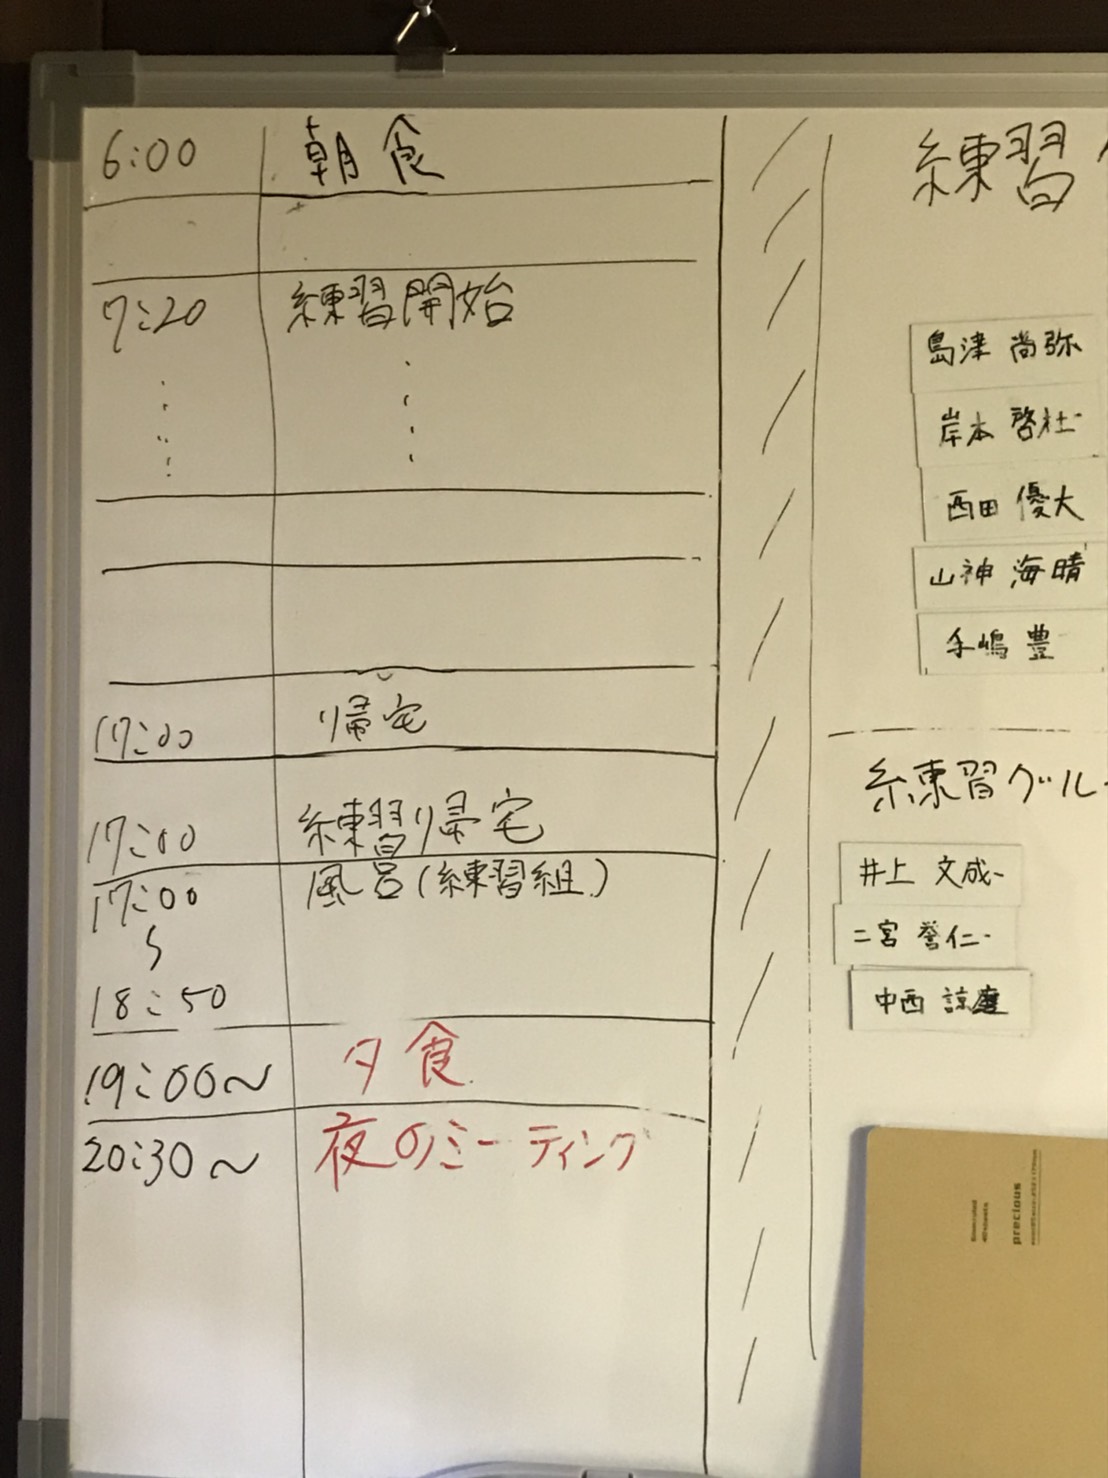 6:00 朝食
7:20 練習開始
17:00 帰宅
17:00 練習帰宅
17:00 風呂(練習組)
〜
18:50
19:00〜 夕食
20:30〜 夜のミーティング
練習
島津 尚弥
岸本 啓杜
西田 優大
山神 海晴
手嶋 豊
練習グルー
井上 文成
二宮 誉仁
中西 諒磨
precious